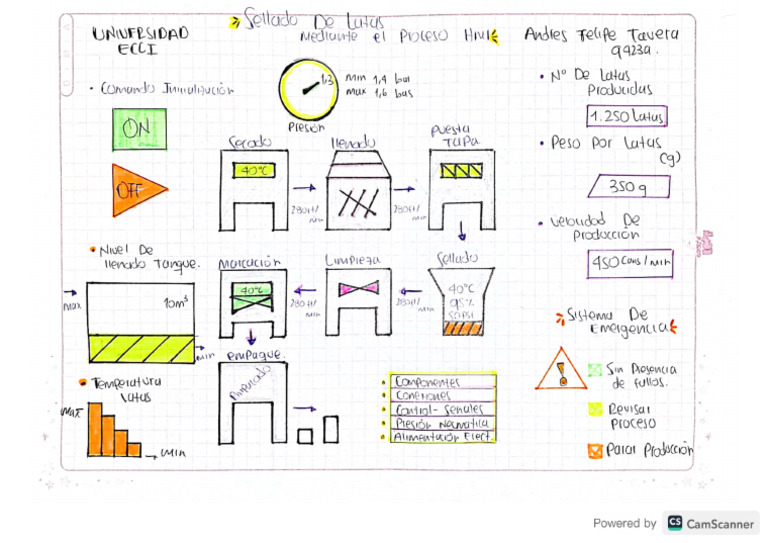 UNIVERSIDAD
ECCI
Sellado De Latas
Mediante el Proceso HMI
Andres Felipe Tavera
99239.
• Comando Inicialización
ON
OFF
1,3
Min 1,4 bar
Max 1,6 bar
Presión
• N° De Latas
Producidas
1.250 Latas
• Peso Por Latas
(g)
350 g
• Velocidad De
Producción
450 Cans/min
Secado
40°C
280ft/
Min
llenado
280ft/
Min
Puesta
Tapa
• Nivel De
llenado Tanque.
Max
10m³
Min
Marcación
40°C
280ft/
Min
Limpieza
280ft/
Min
Sellado
40°C
95%
50PSI
empaque.
• Temperatura
latas
Max
Min
Componentes
Conexiones
Control-Señales
Presión Neumatica
Alimentación Elect.
Sistema De
Emergencia
!
Sin Presencia
de fallos.
Revisar
Proceso
Parar Producción
Powered by CS CamScanner